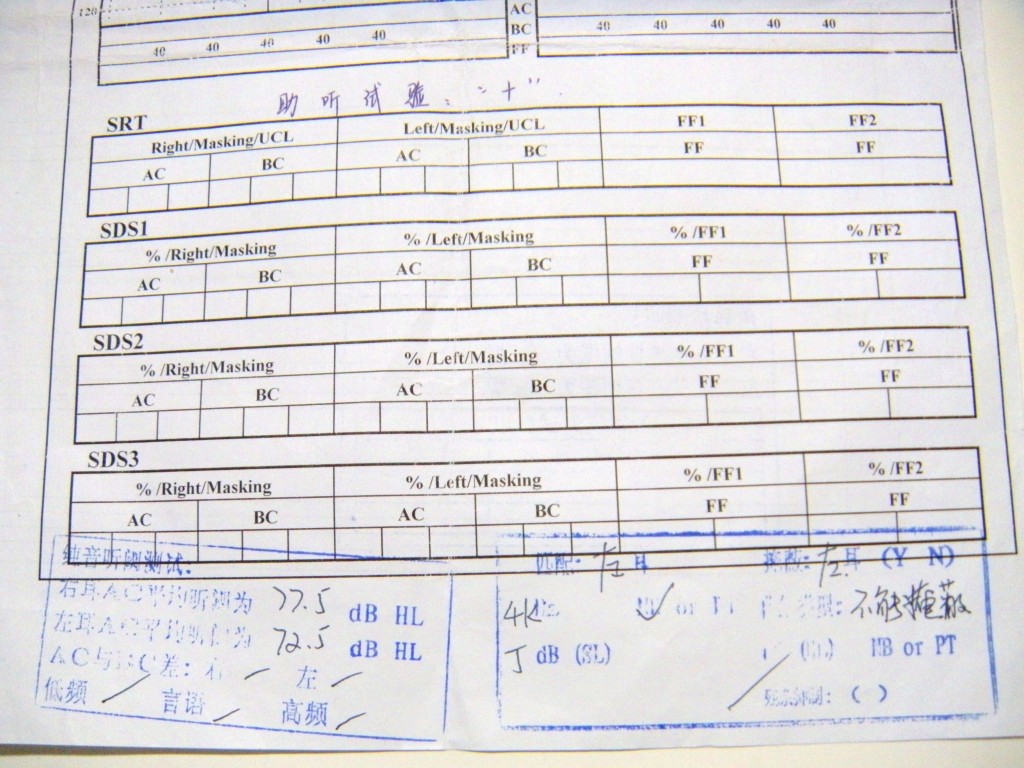 120
40 40 40 40 40
AC
BC
FF
40 40 40 40 40
助听试验："+"
SRT
Right/Masking/UCL Left/Masking/UCL FF1 FF2
AC BC AC BC FF FF
SDS1
% /Right/Masking % /Left/Masking % /FF1 % /FF2
AC BC AC BC FF FF
SDS2
% /Right/Masking % /Left/Masking % /FF1 % /FF2
AC BC AC BC FF FF
SDS3
% /Right/Masking % /Left/Masking % /FF1 % /FF2
AC BC AC BC FF FF
纯音听阈测试:
右耳AC平均听阈为 77.5 dB HL
左耳AC平均听阈为 72.5 dB HL
AC与BC差: 右 左
低频 言语 高频
匹配: 左耳 掩蔽: 左耳 (Y N)
4K or 不能掩蔽
dB (SL) NB or PT